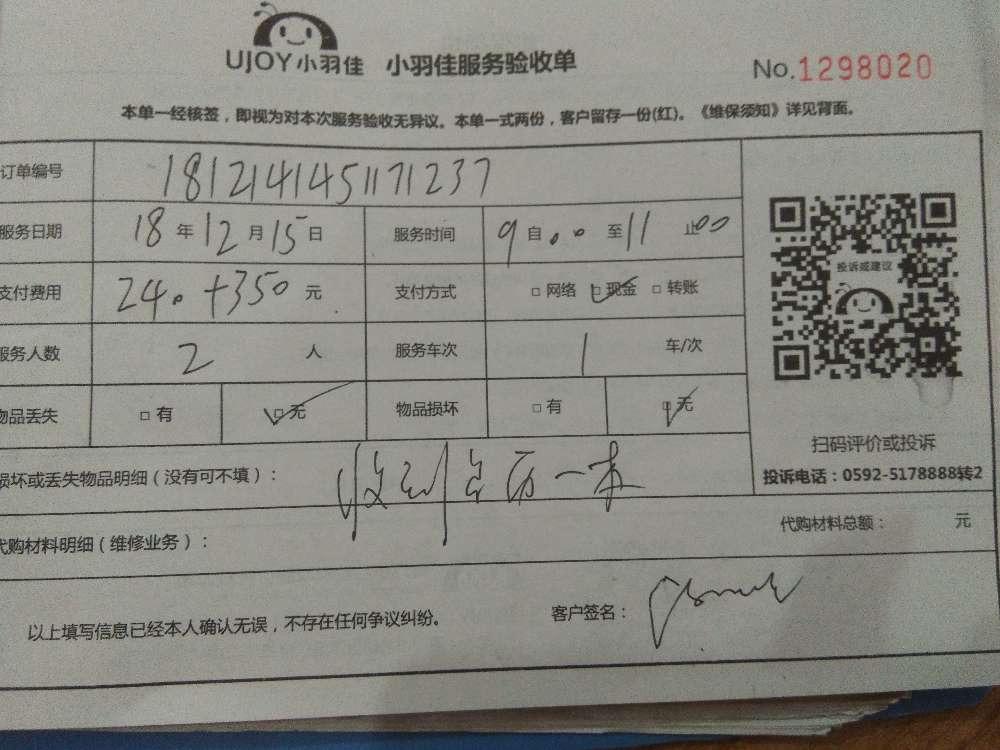 UJOY小羽佳 小羽佳服务验收单 No.1298020
本单一经核签，即视为对本次服务验收无异议。本单一式两份，客户留存一份(红)。《维保须知》详见背面。
订单编号 1812141451171237
服务日期 18 年 12 月 15 日 服务时间 9 自 00 至 11 止 00
投诉或建议
支付费用 240+350 元 支付方式 □ 网络 □ 现金 □ 转账
服务人数 2 人 服务车次 1 车/次
物品丢失 □ 有 □ 无 物品损坏 □ 有 □ 无
扫码评价或投诉
损坏或丢失物品明细（没有可不填）： 收到台历一本
投诉电话：0592-5178888转2
代购材料明细（维修业务）： 代购材料总额： 元
以上填写信息已经本人确认无误，不存在任何争议纠纷。 客户签名：